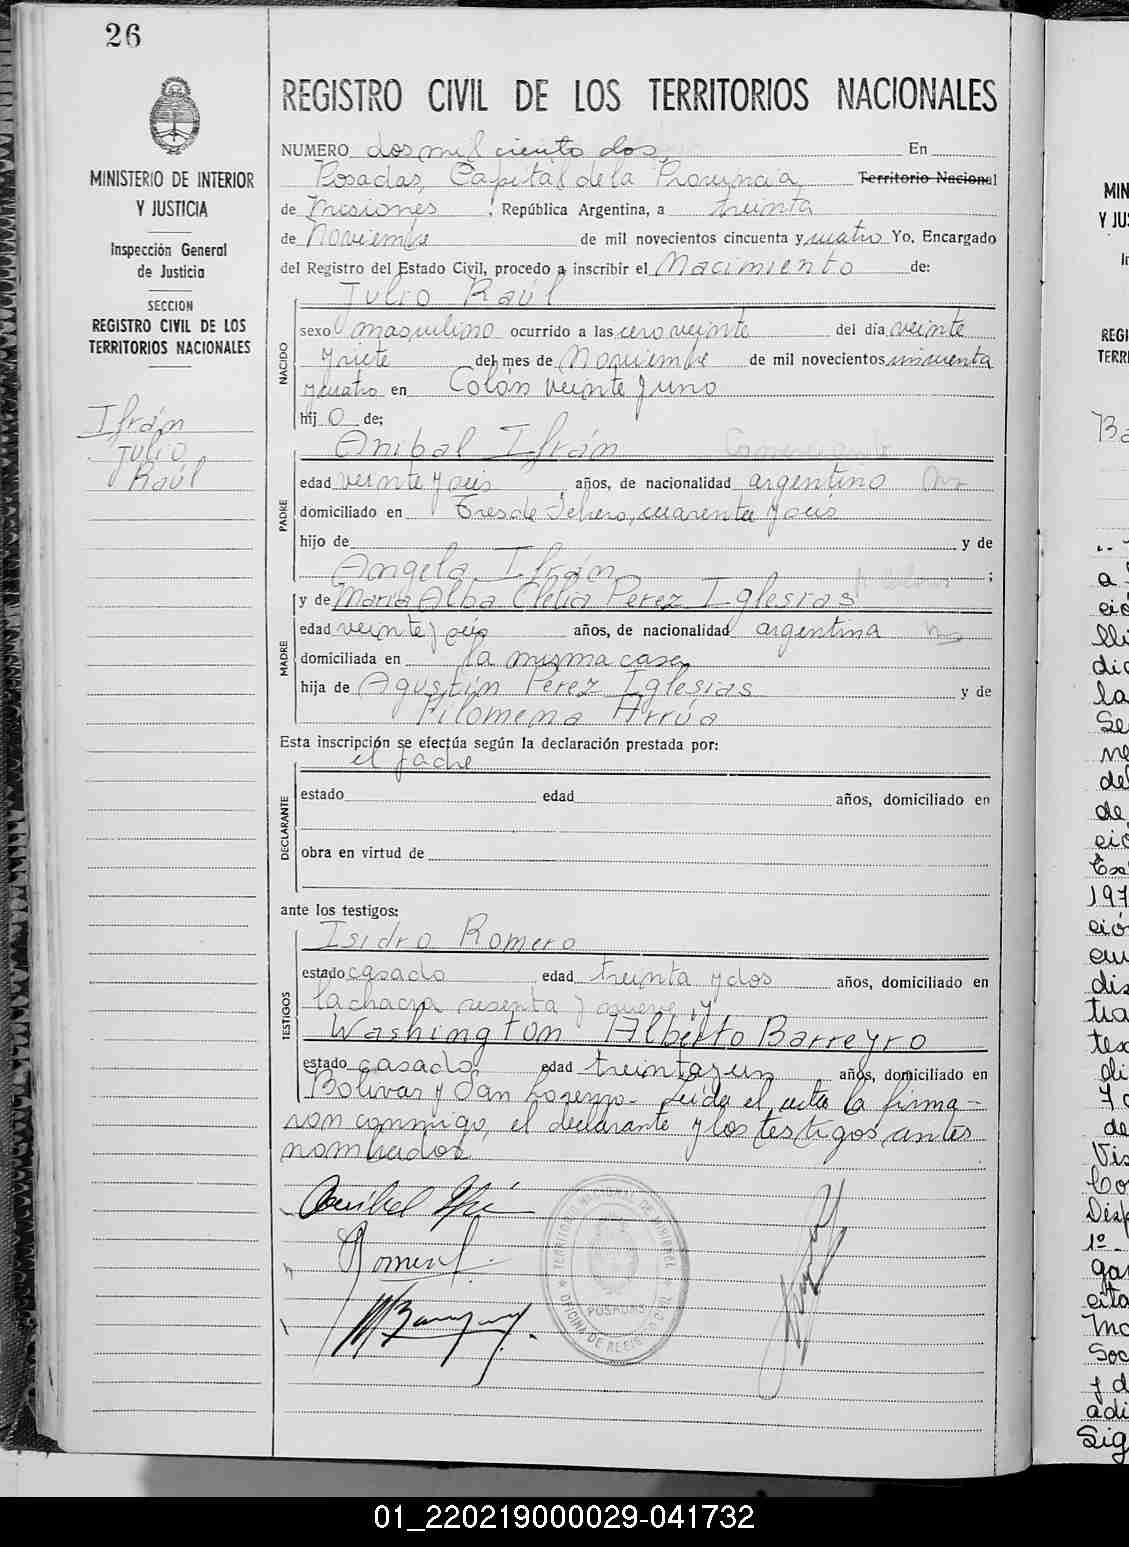 26
MINISTERIO DE INTERIOR
Y JUSTICIA
Inspección General
de Justicia
SECCION
REGISTRO CIVIL DE LOS
TERRITORIOS NACIONALES
Ifrán
Julio
Raúl
REGISTRO CIVIL DE LOS TERRITORIOS NACIONALES
NUMERO dos mil ciento dos En
Posadas, Capital de la Provincia Territorio Nacional
de Misiones, República Argentina, a treinta
de Noviembre de mil novecientos cincuenta y cuatro Yo, Encargado
del Registro del Estado Civil, procedo a inscribir el Nacimiento de:
Julio Raúl
NACIDO
sexo masculino ocurrido a las cero veinte del día veinte
y siete del mes de Noviembre de mil novecientos cincuenta
y cuatro en Colón veinte y uno
hijo de;
Anibal Ifrán
PADRE
edad veinte y seis años, de nacionalidad argentino
domiciliado en Tres de Febrero, cuarenta y seis
hijo de y de
Angela Ifrán;
y de María Alba Clelia Perez Iglesias
MADRE
edad veinte y seis años, de nacionalidad argentina
domiciliada en la misma casa
hija de Agustín Perez Iglesias y de
Filomena Arrúa
Esta inscripción se efectúa según la declaración prestada por:
el padre
DECLARANTE
estado edad años, domiciliado en
obra en virtud de
ante los testigos:
Isidro Romero
TESTIGOS
estado casado edad treinta y dos años, domiciliado en
la chacra sesenta y nueve, y
Washington Alberto Barreyro
estado casado, edad treinta y un años, domiciliado en
Bolivar y San Lorenzo- Leída el acta la firma-
ron conmigo, el declarante y los testigos antes
nombrados
Anibal Ifrán
Romero
TERRITORIO NACIONAL DE MISIONES
POSADAS
OFICINA DE REGISTRO CIVIL
MIN
Y JUS
REGI
TERRI
Ba
a
ció
lli
dic
la
Se
ne
del
de
ció
197
ció
dis
tra
tex
di
de
Vis
Co
1º
ga
cita
Soc
y d
adi
Sig
01_220219000029-041732